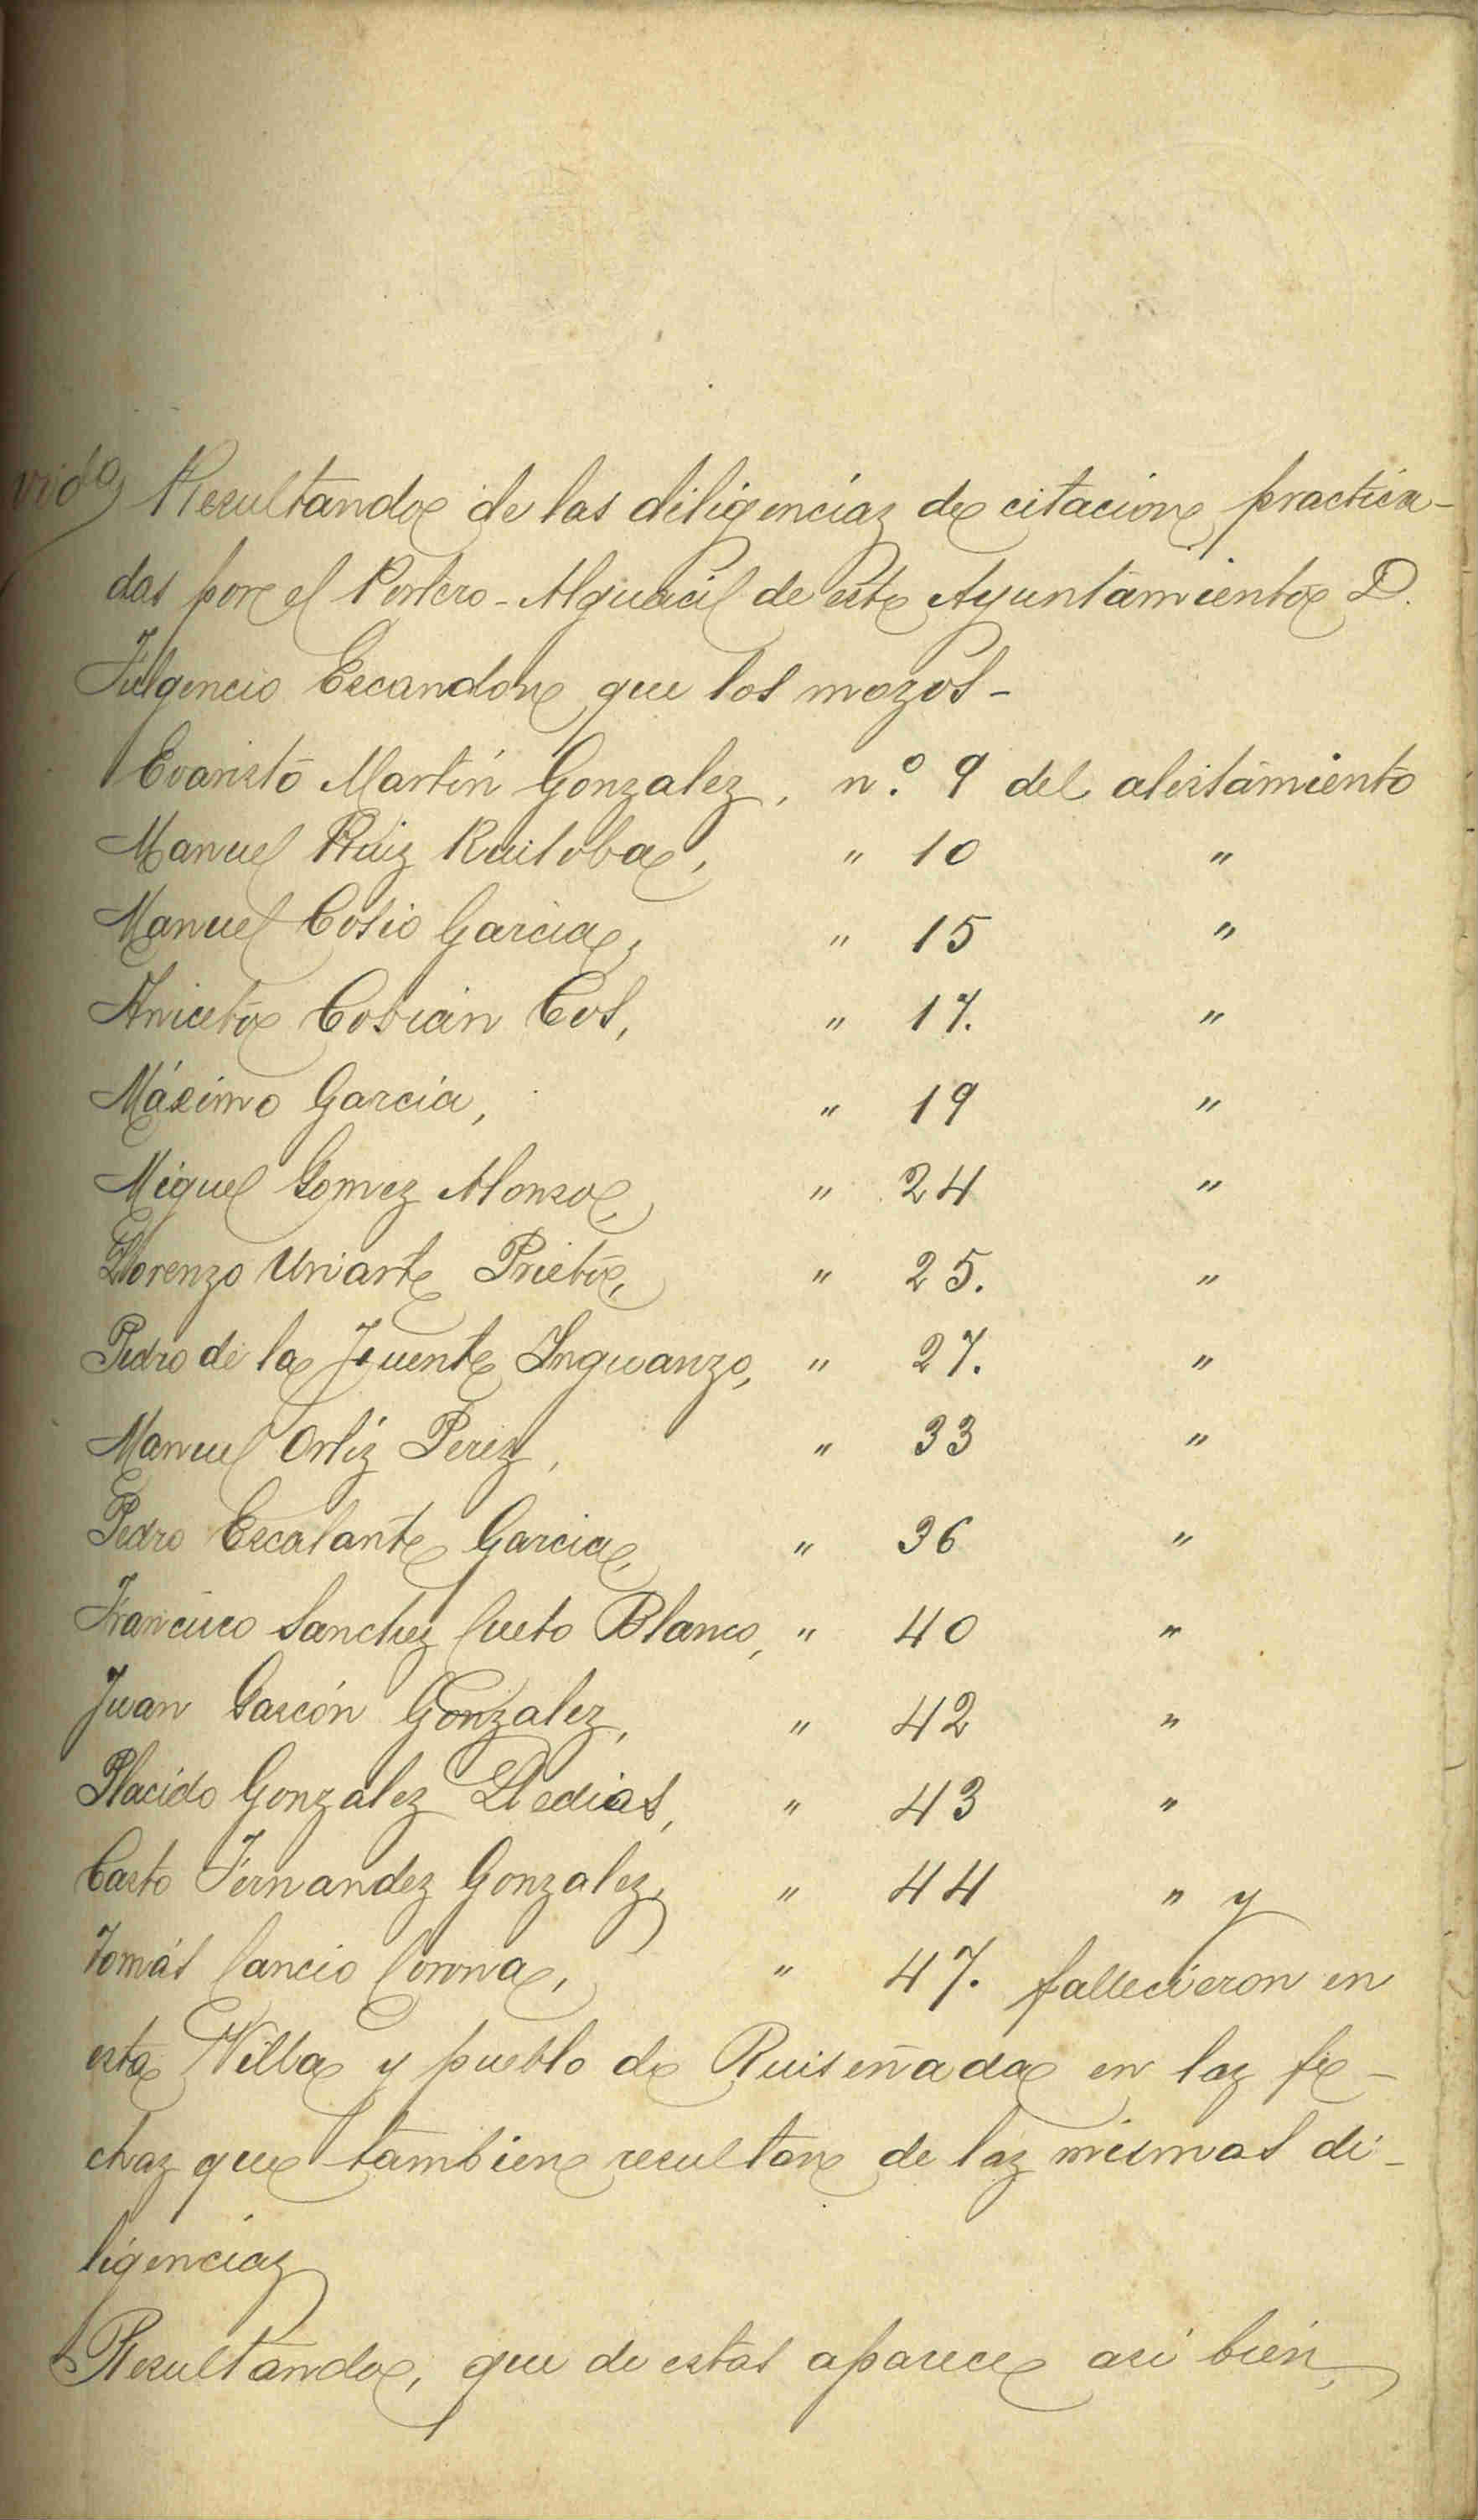 Resultando de las diligencias de citacion practica-
das por el Portero-Alguacil de este Ayuntamiento D.
Fulgencio Escandon que los mozos-
Evaristo Martín Gonzalez, n.º 9 del alistamiento
Manuel Ruiz Ruiloba, " 10 "
Manuel Cosio Garcia, " 15 "
Aniceto Cobián Cos, " 17. "
Máximo García, " 19 "
Miguel Gomez Alonso, " 24 "
Lorenzo Uriarte Prieto, " 25. "
Pedro de la Fuente Inguanzo, " 27. "
Manuel Ortiz Perez, " 33 "
Pedro Escalante Garcia, " 36 "
Francisco Sanchez Cueto Blanco, " 40 "
Juan Gascón Gonzalez, " 42 "
Placido Gonzalez Lledias, " 43 "
Casto Fernandez Gonzalez, " 44 " y
Tomás Cancio Corona, " 47. fallecieron en
esta Villa y pueblo de Ruiseñada en las fe-
chas que tambien resultan de las mismas di-
ligencias
Resultando, que de estas aparece asi bien,